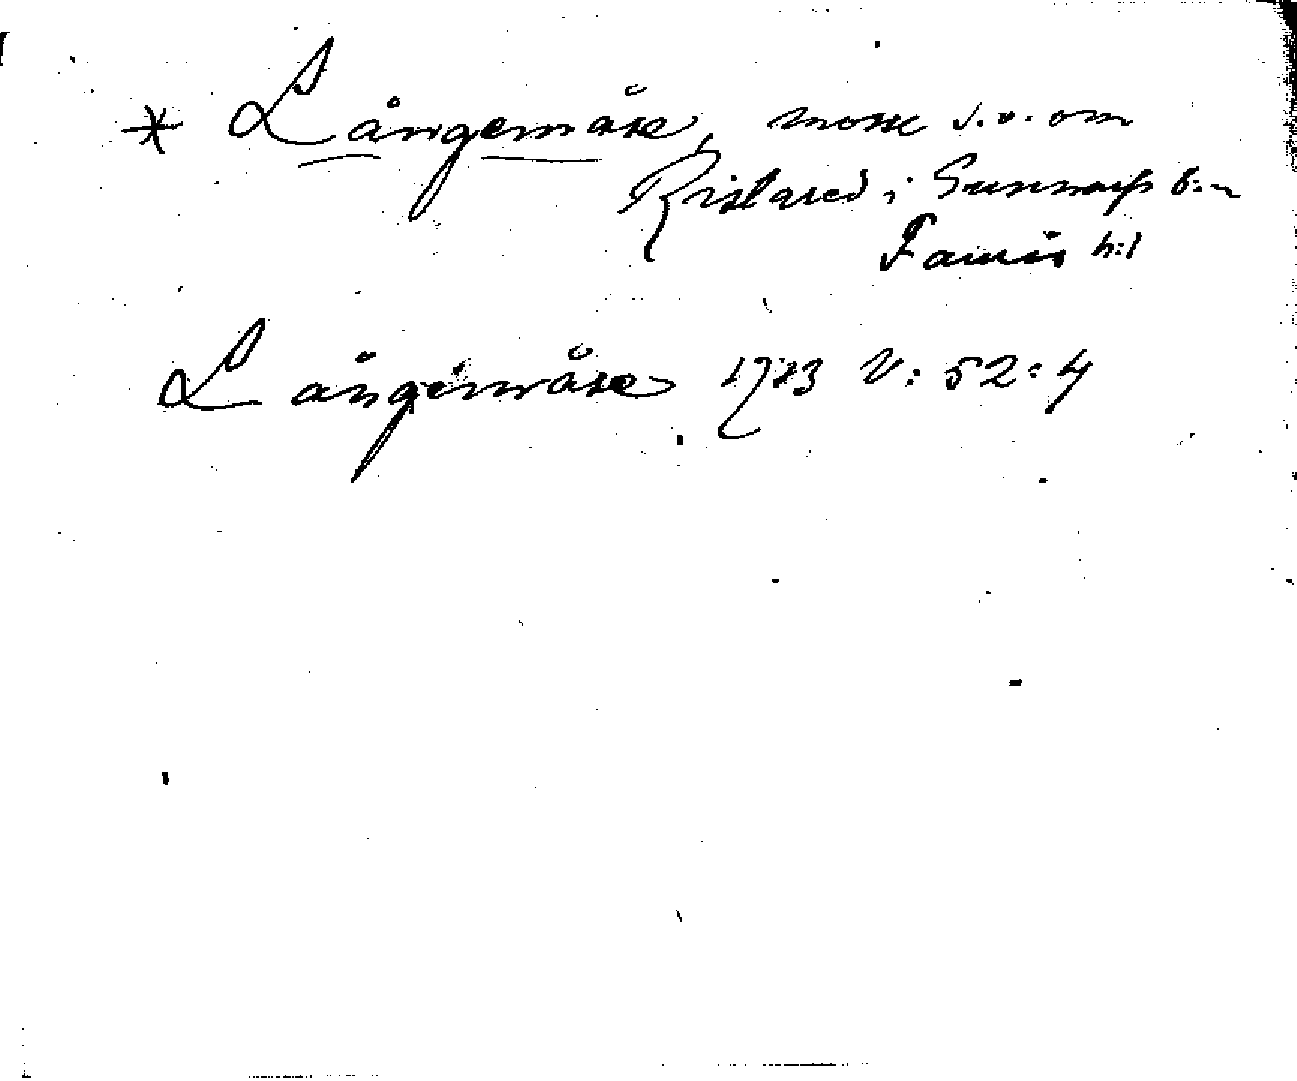 * Långemåse, mosse s.v. om
Ristared i Gunnarps s:n
Faurås h:d
Långemåse 1783 V: 52: 4